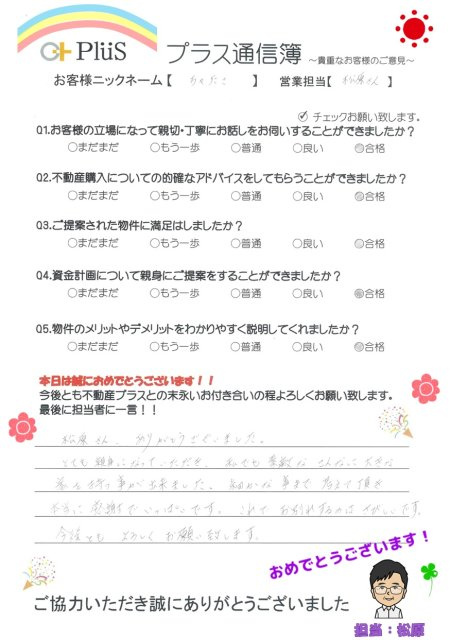 PlüS プラス通信簿 ～貴重なお客様のご意見～
お客様ニックネーム【 】 営業担当【 松原さん 】
チェックお願い致します。
Q1.お客様の立場になって親切・丁寧にお話しをお伺いすることができましたか？
○まだまだ ○もう一歩 ○普通 ○良い ◎合格
Q2.不動産購入についての的確なアドバイスをしてもらうことができましたか？
○まだまだ ○もう一歩 ○普通 ○良い ◎合格
Q3.ご提案された物件に満足はしましたか？
○まだまだ ○もう一歩 ○普通 ○良い ◎合格
Q4.資金計画について親身にご提案をすることができましたか？
○まだまだ ○もう一歩 ○普通 ○良い ◎合格
Q5.物件のメリットやデメリットをわかりやすく説明してくれましたか？
○まだまだ ○もう一歩 ○普通 ○良い ◎合格
本日は誠におめでとうございます！！
今後とも不動産プラスとの末永いお付き合いの程よろしくお願い致します。
最後に担当者に一言！！
松原さん、ありがとうございました。
とても親身になっていただき、私でも素敵な こんなに大きな
事が出来ました。細かな事まで 頂き
本当に感謝でいっぱいです。これでお別れするのはさびしいです。
今後とも よろしくお願い致します。
おめでとうございます！
ご協力いただき誠にありがとうございました
担当：松原